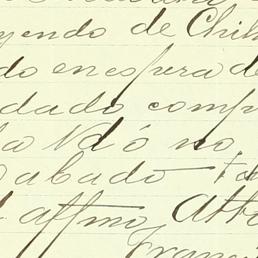 yendo de Chih
do en espera de
dado comp
la Vd ó no,
abado
affmo, Atto
Franci